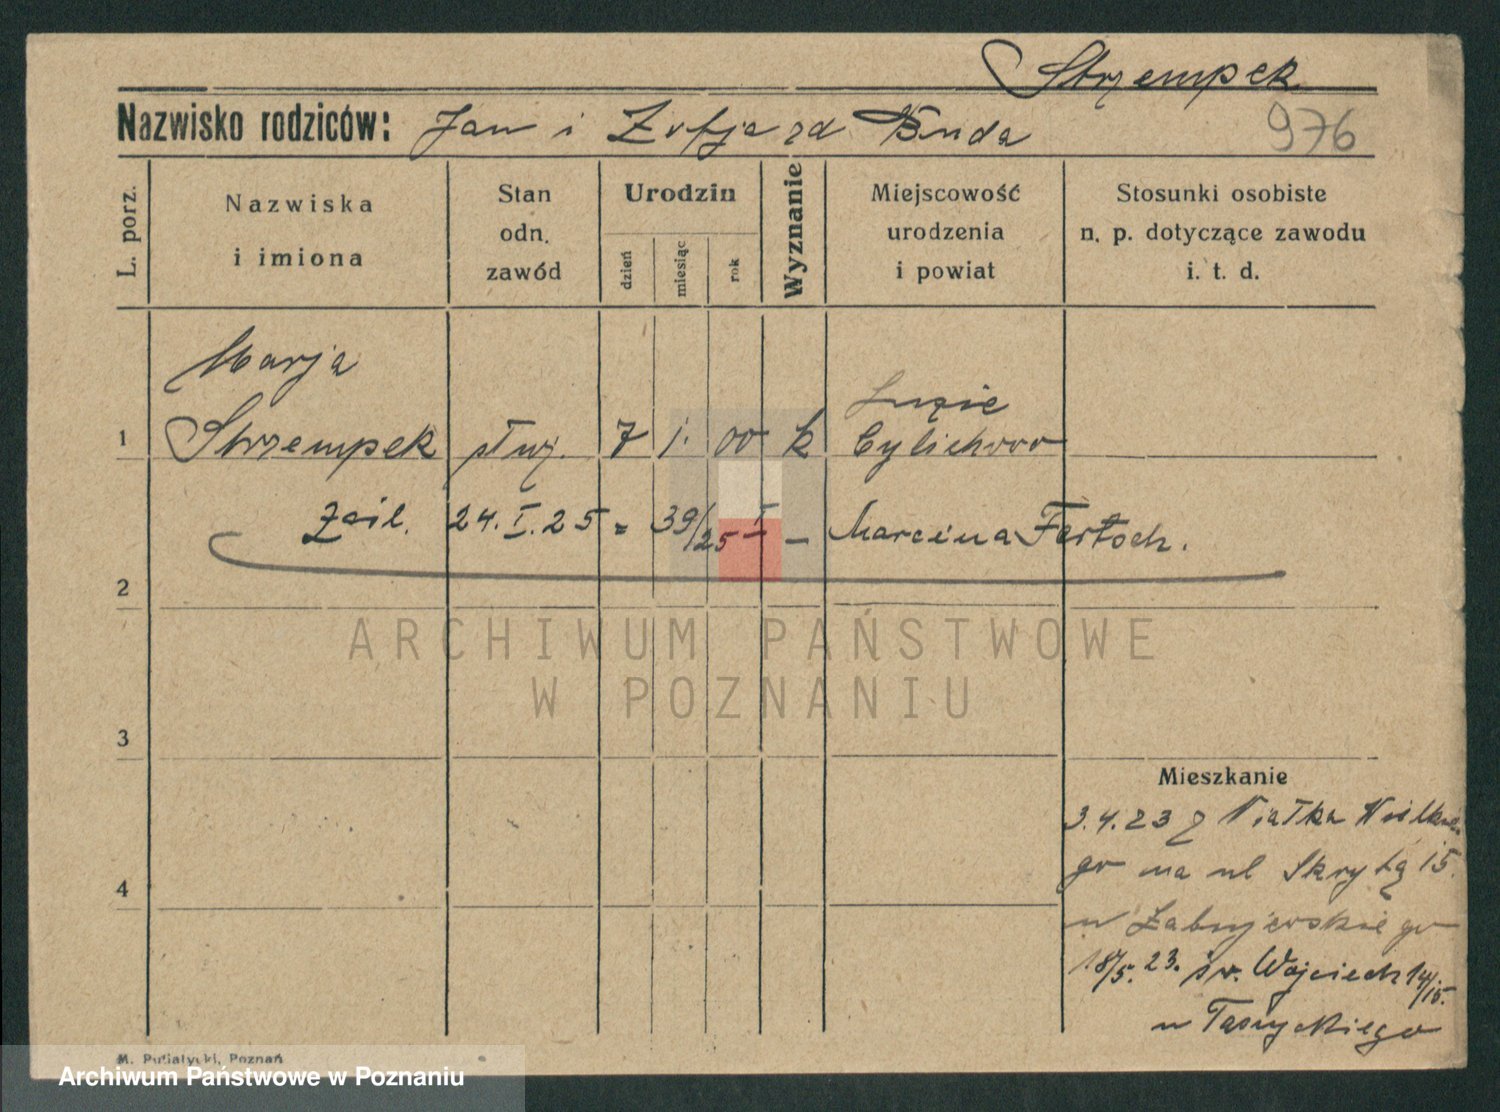 Strzempek
Nazwisko rodziców: Jan i Zofja zd Buda
976
L. porz.
Nazwiska
i imiona
Stan
odn.
zawód
Urodzin
dzień
miesiąc
rok
Wyznanie
Miejscowość
urodzenia
i powiat
Stosunki osobiste
n. p. dotyczące zawodu
i. t. d.
Marja
1 Strzempek służ. 7 1. 00 k
Zaśl. 24.I.25 = 39/25 I — Marcina
2
ARCHIWUM PAŃSTWOWE
W POZNANIU
3
Mieszkanie
3.4.23 z Piątka Wielkie
go na ul Skrytą 15.
4
18/5. 23. św. Wojciech 14/15.
M. Putiatycki, Poznań
Archiwum Państwowe w Poznaniu